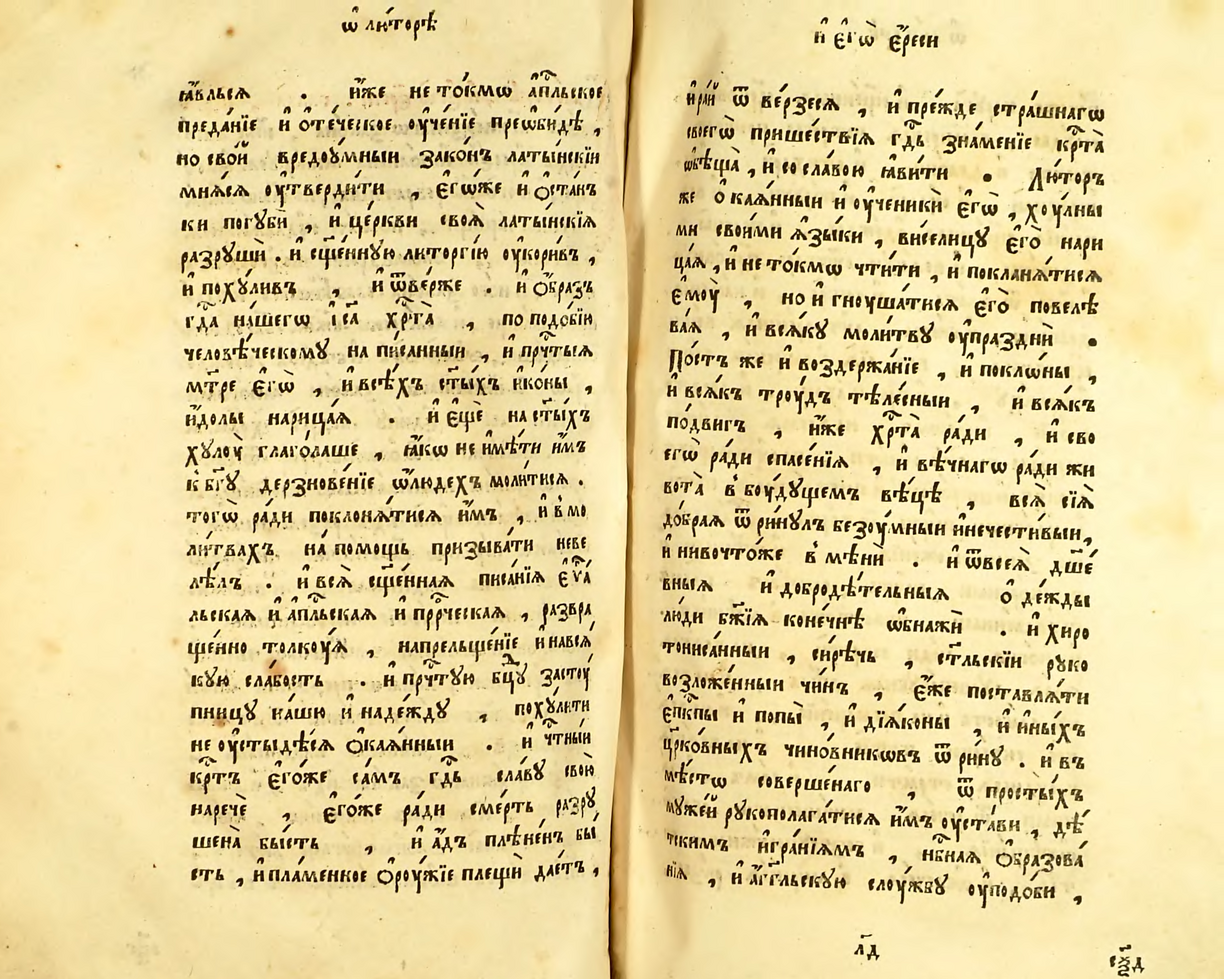 ѡ҆ лю́торѣ
ꙗ҆́влься . и҆́же не то́кмѡ а҆пⷭ҇льское
преда́нїе и҆ ѻ҆те́ческое ᲂу҆че́нїе преѡби́дѣ ,
но сво́й вредоу́мныи зако́нъ латы́нскїи
мня́ся ᲂу҆тверди́ти , є҆гѡ́же и҆ ѻ҆ста́н
ки погуби̂ , и҆ це́ркви своя̀ латы́нскїя
разрꙋши̂ . и҆ сщ҃е́нную литоргі́ю ᲂу҆кори́въ ,
и҆ похꙋ́ливъ , и҆ ѿве́рже . и҆ ѻ҆́бразъ
гдⷭ҇а на́шегѡ і҆с҃а хрⷭ҇та̀ , по подо́бїю
человѣ́ческомꙋ написанныи , и҆ прⷱ҇тыя
мт҃ре є҆гѡ̀ , и҆ всѣ́хъ ст҃ы́хъ и҆ко́ны ,
и҆́долы нарица́я . и҆ є҆щѐ на ст҃ы́хъ
хꙋлоу̀ глаго́лаше , ꙗ҆́кѡ не и҆мѣ́ти и҆̀мъ
к бг҃ꙋ дерзнове́нїе ѡ҆ людехъ моли́тися .
тогѡ̀ ра́ди поклоня́тися и҆̀мъ , и҆ в мо
ли́твахъ на по́мощь призыва́ти неве
лѣ́лъ . и҆ вся̀ сщ҃е́нная писа́нїя є҆ѵⷢ҇а
льская и҆ а҆пⷭ҇льская и҆ прⷪ҇ро́ческая , развра
ще́нно толкоу́я , на прельще́нїе и҆ на вся́
кую сла́бость . и҆ прⷱ҇тую бц҃ꙋ застоу́
пницꙋ на́шю и҆ наде́ждꙋ , похꙋ́лити
не ᲂу҆стыдѣ́ся ѻ҆кая́нныи . и҆ чⷭ҇тны́и
крⷭ҇тъ є҆го́же са́мъ гдⷭ҇ь сла́вꙋ свою̀
нарече̂ , є҆го́же ра́ди сме́рть разрꙋ
шена̀ бы́сть , и҆ а҆́дъ плѣне́нъ бы́
сть , и҆ пла́менное ѻ҆роу́жїе плещѝ дае́тъ ,
и҆ є҆гѡ̀ є҆́реси
и҆ ра́й ѿ ве́рзеся , и҆ пре́жде стра́шнагѡ
своегѡ̀ прише́ствїя гдⷭ҇ь зна́менїе крⷭ҇та̀
ѡ҆бѣща̀ , и҆ со сла́вою ꙗ҆ви́ти . Лю́торъ
же ѻ҆кая́нныи и҆ ᲂу҆ченикѝ є҆гѡ̀ , хоу́лны
ми свои́ми ѧ҆зы́ки , ви́селицꙋ є҆го̀ нари
ца́я , и҆ не то́кмѡ чти́ти , и҆ покланя́тися
є҆моу̀ , но и҆ гноуша́тися є҆го̀ повелѣ
ва́я , и҆ вся́кꙋ моли́твꙋ ᲂу҆праздни̂ .
По́стъ же и҆ воздержа́нїе , и҆ покло́ны ,
и҆ вся́къ троу́дъ тѣле́сныи , и҆ вся́къ
по́двигъ , и҆́же хрⷭ҇та̀ ра́ди , и҆ сво
егѡ̀ ра́ди спасе́нїя , и҆ вѣ́чнагѡ ра́ди жи
вота̀ в боу́дꙋщемъ вѣ́цѣ , вся̀ сїя̀
до́брая ѿ ри́нꙋлъ безоу́мныи и҆ нечести́выи ,
и҆ ни во что́же в мѣни̂ . и҆ ѿ всея̀ дш҃е́
вныя и҆ добродѣ́тельныя ѻ҆де́жды
лю́ди бж҃їя коне́чнѣ ѡ҆бнажи̂ . и҆ хиро
тониса́нныи , си́рѣчь , ст҃льскїи рꙋко
возложе́нныи чи́нъ , є҆́же поставля́ти
є҆пⷭ҇кпы и҆ попы̀ , и҆ дїя́коны , и҆ и҆ны́хъ
цр҃ко́вныхъ чино́вникѡвъ ѿ ри́нꙋ . и҆ въ
мѣ́стѡ соверше́наго , ѿ просты́хъ
мꙋже́й рꙋкополага́тися и҆̀мъ ᲂу҆ста́ви , дѣ́
тскимъ и҆гра́нїямъ , нбⷭ҇ная ѻ҆бразова́
нїя , и҆ а҆́гг҃льскую слоу́жбꙋ ᲂу҆подо́би ,
л҃д